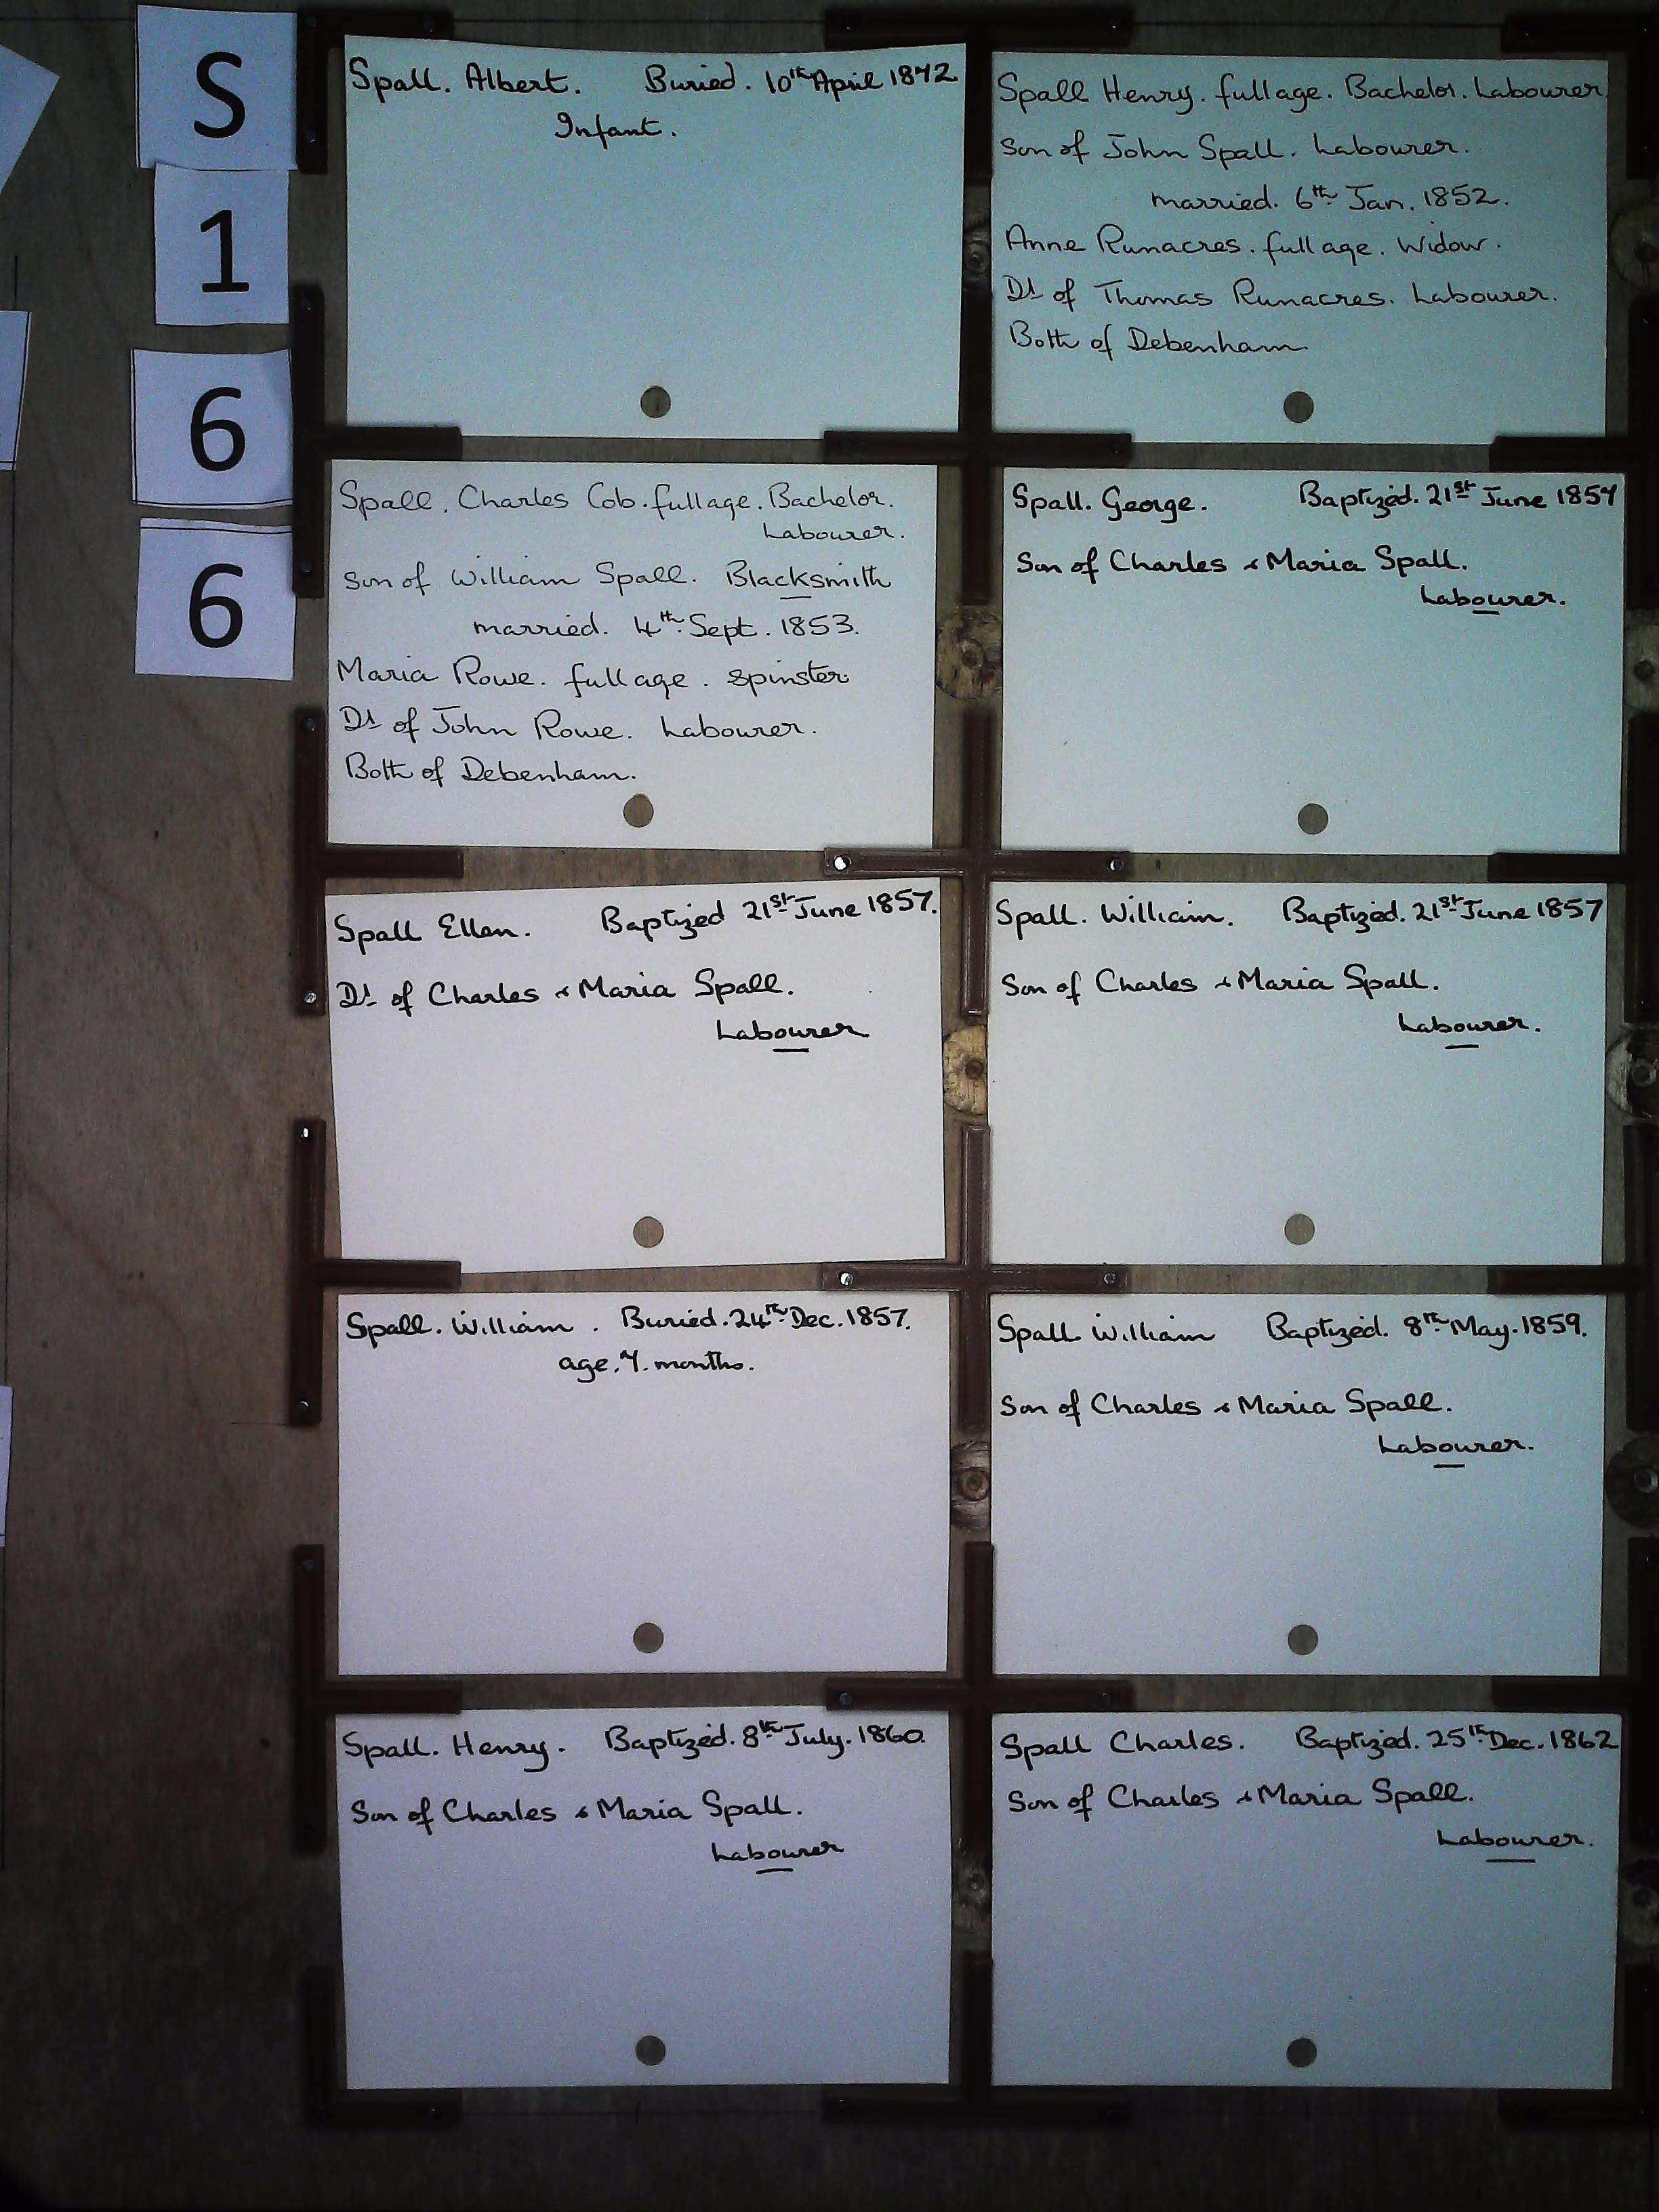 S
1
6
6
Spall. Albert. Buried. 10th April 1842
Infant.
Spall Henry. full age. Bachelor. Labourer
Son of John Spall. Labourer.
married. 6th Jan. 1852.
Anne Runacres. full age. Widow.
Dr of Thomas Runacres. Labourer.
Both of Debenham
Spall. Charles Cob. full age. Bachelor.
Labourer.
Son of William Spall. Blacksmith
married. 4th Sept. 1853.
Maria Rowe. full age. Spinster
Dr of John Rowe. Labourer.
Both of Debenham.
Spall. George. Baptized. 21st June 1854
Son of Charles & Maria Spall.
Labourer.
Spall Ellen. Baptized 21st June 1857.
Dr of Charles & Maria Spall.
Labourer
Spall. William. Baptized. 21st June 1857
Son of Charles & Maria Spall.
Labourer.
Spall. William. Buried. 24th Dec. 1857.
age. 7. months.
Spall William Baptized. 8th May. 1859.
Son of Charles & Maria Spall.
Labourer.
Spall. Henry. Baptized. 8th July. 1860.
Son of Charles & Maria Spall.
Labourer
Spall Charles. Baptized. 25th Dec. 1862
Son of Charles & Maria Spall.
Labourer.